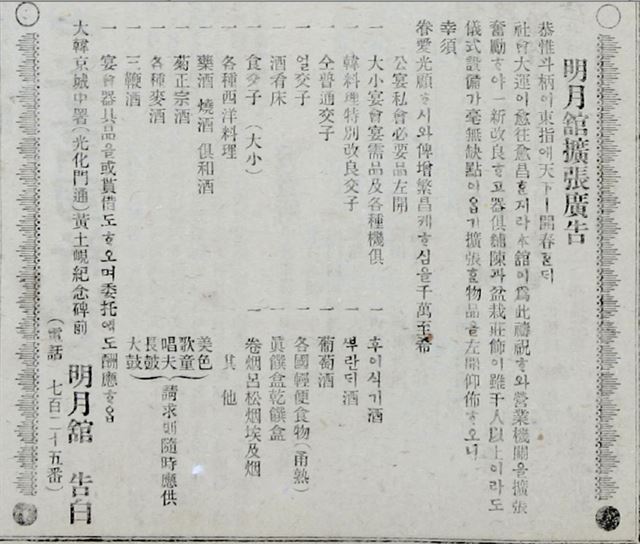 明月舘擴張廣告
恭惟斗柄이東指애天下ㅣ開春ᄒᆞᆫ디
社會大運이愈往愈昌ᄒᆞᆯ지라本舘이爲此禱祝ᄒᆞ와營業機關을擴張
奮勵ᄒᆞ야一新改良ᄒᆞ고器俱鋪陳과盆栽莊飾이雖千人以上이라도
儀式設備가毫無缺點이ᄋᆞᆸ기擴張ᄒᆞᆫ物品을左開仰佈ᄒᆞ오니
幸須
眷愛光顧ᄒᆞ시와俾增繁昌케ᄒᆞ심을千萬至希
公宴私會必要品左開
一 大小宴會宴需品及各種機俱
一 韓料理特別改良交子
一 仝普通交子
一 얼交子
一 酒肴床
一 食交子 (大小)
一 各種西洋料理
一 藥酒 燒酒 俱和酒
一 菊正宗酒
一 各種麥酒
一 三鞭酒
一 후이식기酒
一 ᄲᅮ란디酒
一 葡萄酒
一 各國輕便食物 (甬熟)
一 眞饌盒乾饌盒
一 卷烟呂松烟埃及烟
其他
美色
歌童
唱夫
長鼓
大鼓
請求則隨時應供
一 宴會器具品을或貰借도ᄒᆞ오며委托애도酬應ᄒᆞᄋᆞᆸ
大韓京城中署(光化門通)黃土峴紀念碑前
明月舘 告白
(電話 七百二十五番)